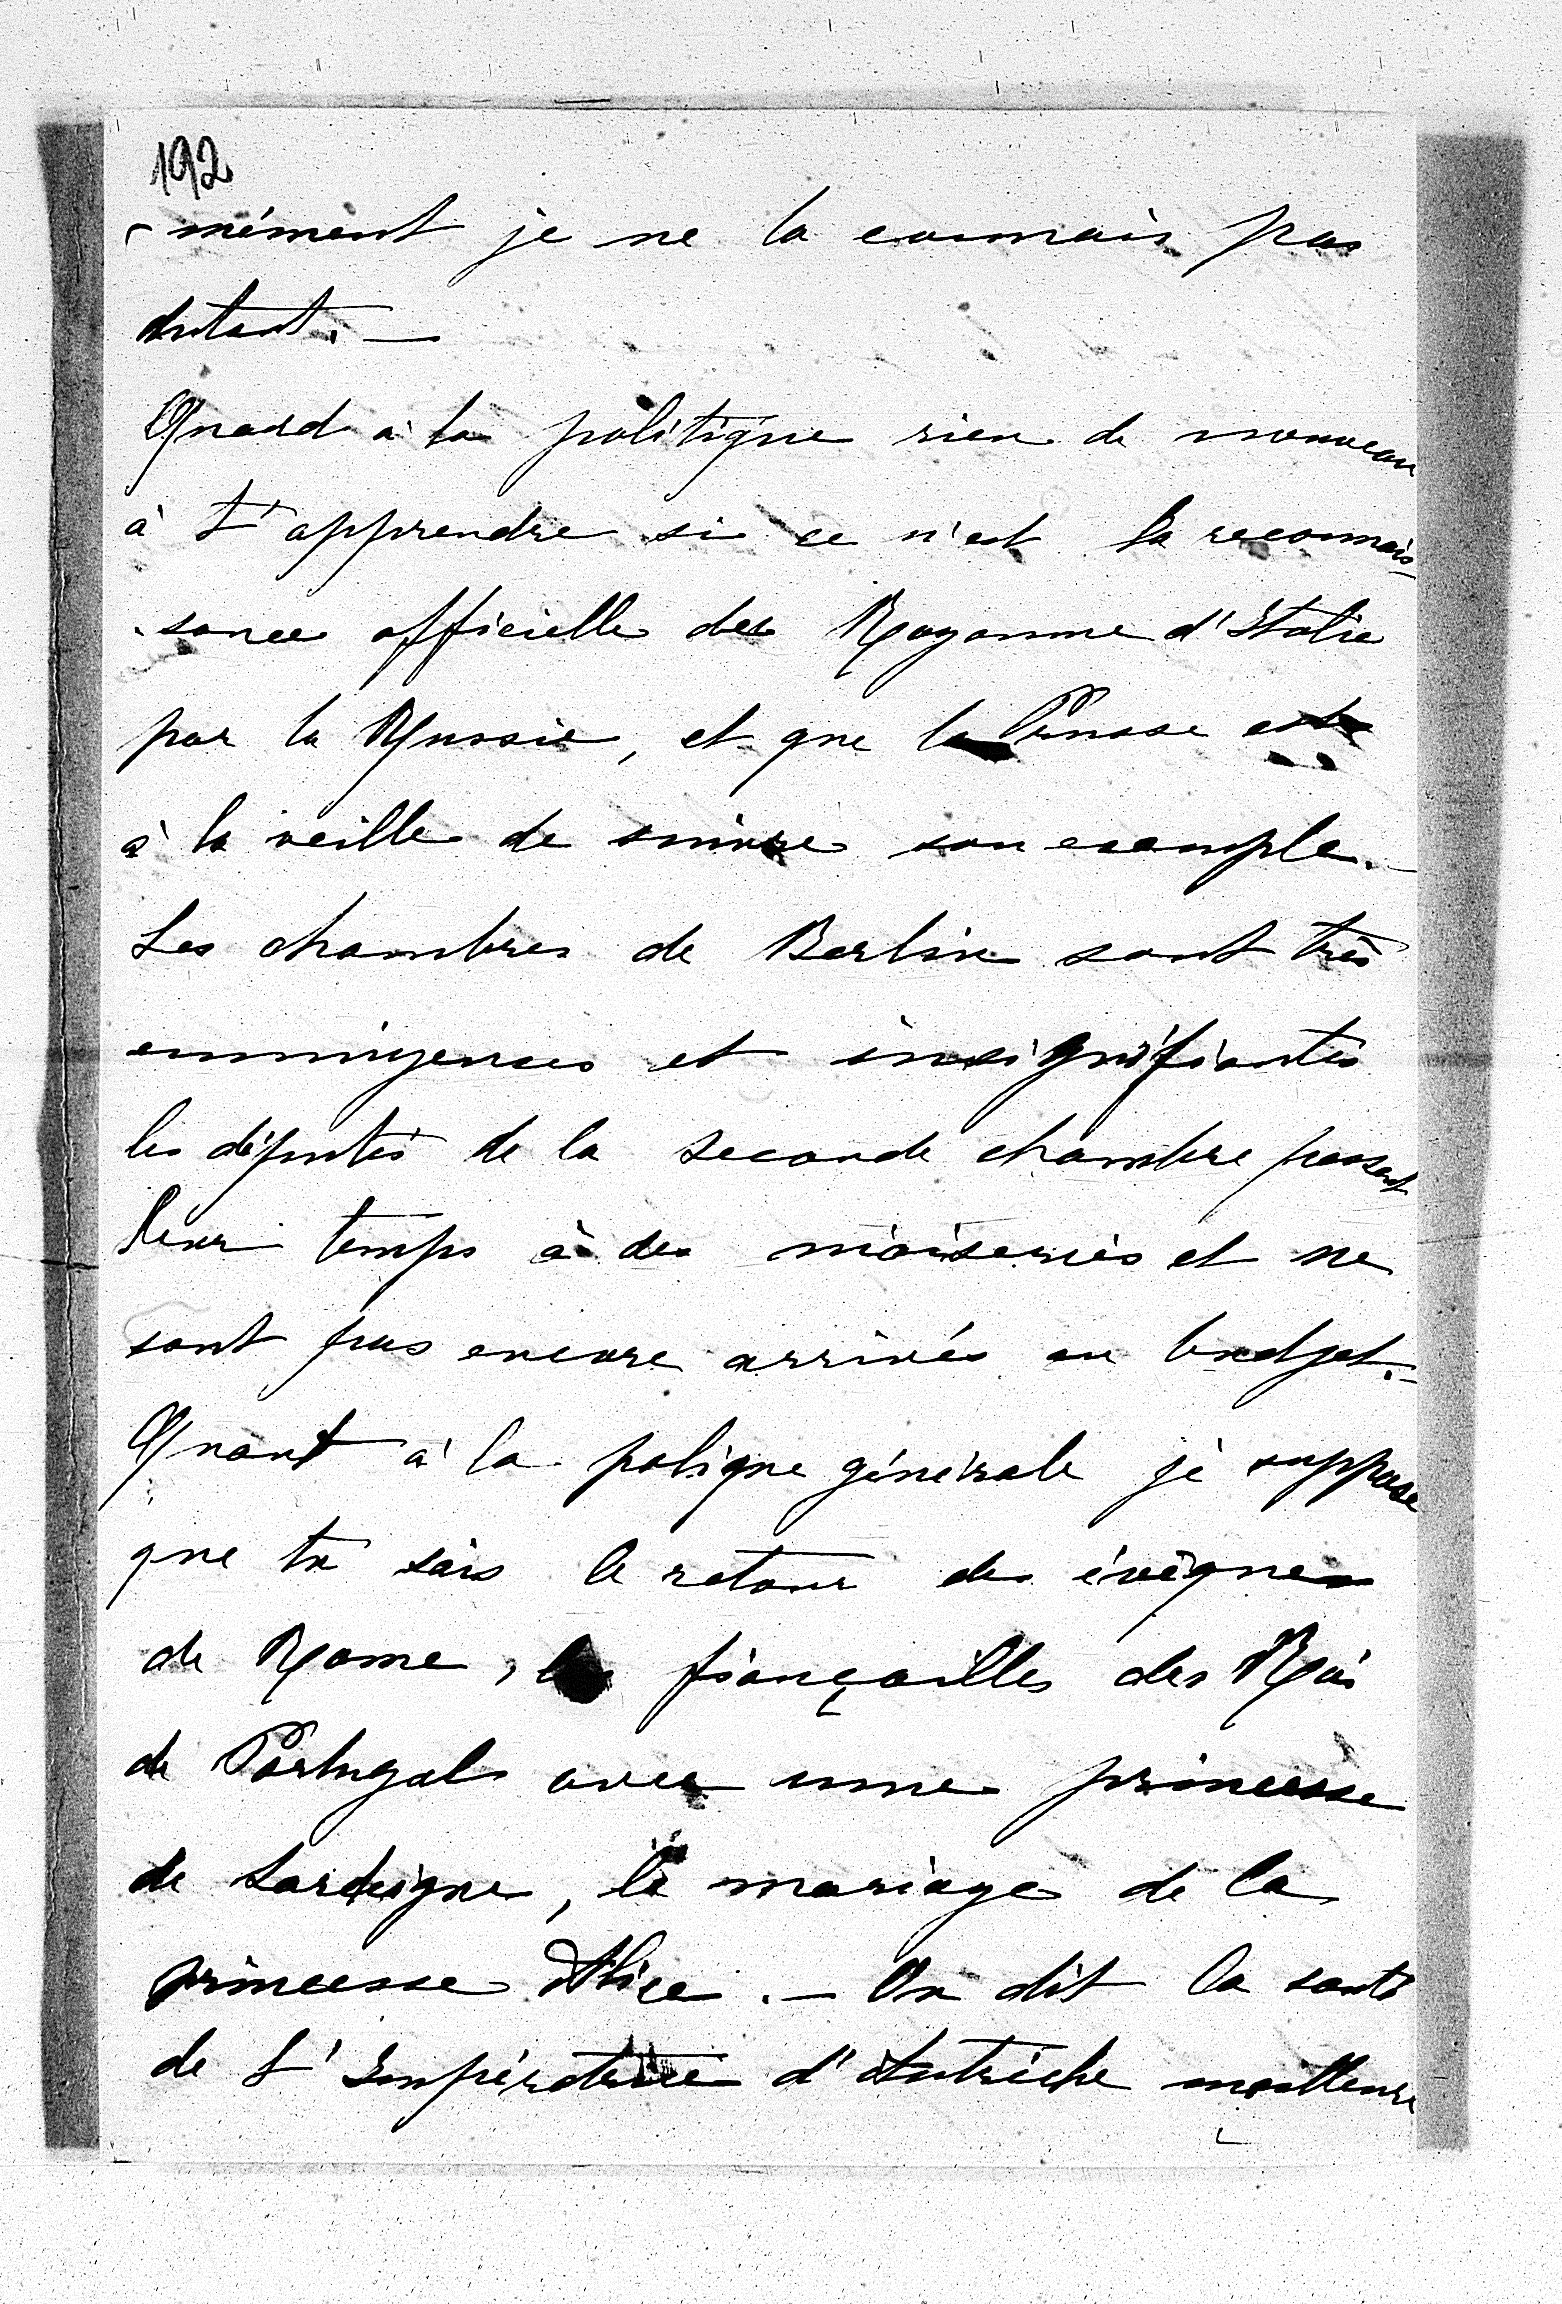 192
-mément je ne la connais pas
dutout. —
Quand à la politique rien de nouveau
à t'apprendre si ce n'est la reconnais-
-sance officielle des Royaume d'Italie
par la Russie, et que la Prusse est
à la veille de suivre son exemple. -
Les chambres de Berlin sont très
ennuyeuses et insignifiantes
les députés de la seconde chambre passent
leur temps à des niaiseries et ne
sont pas encore arrivés au budget. -
Quant à la polique générale je suppose
que tu sais le retour des évêques
de Rome, les fiançailles des Roi
de Portugal avec une princesse
de Sardeigne, le mariage de la
princesse Alice. — On dit la santé
de l'Impératrice d'Autriche meilleure